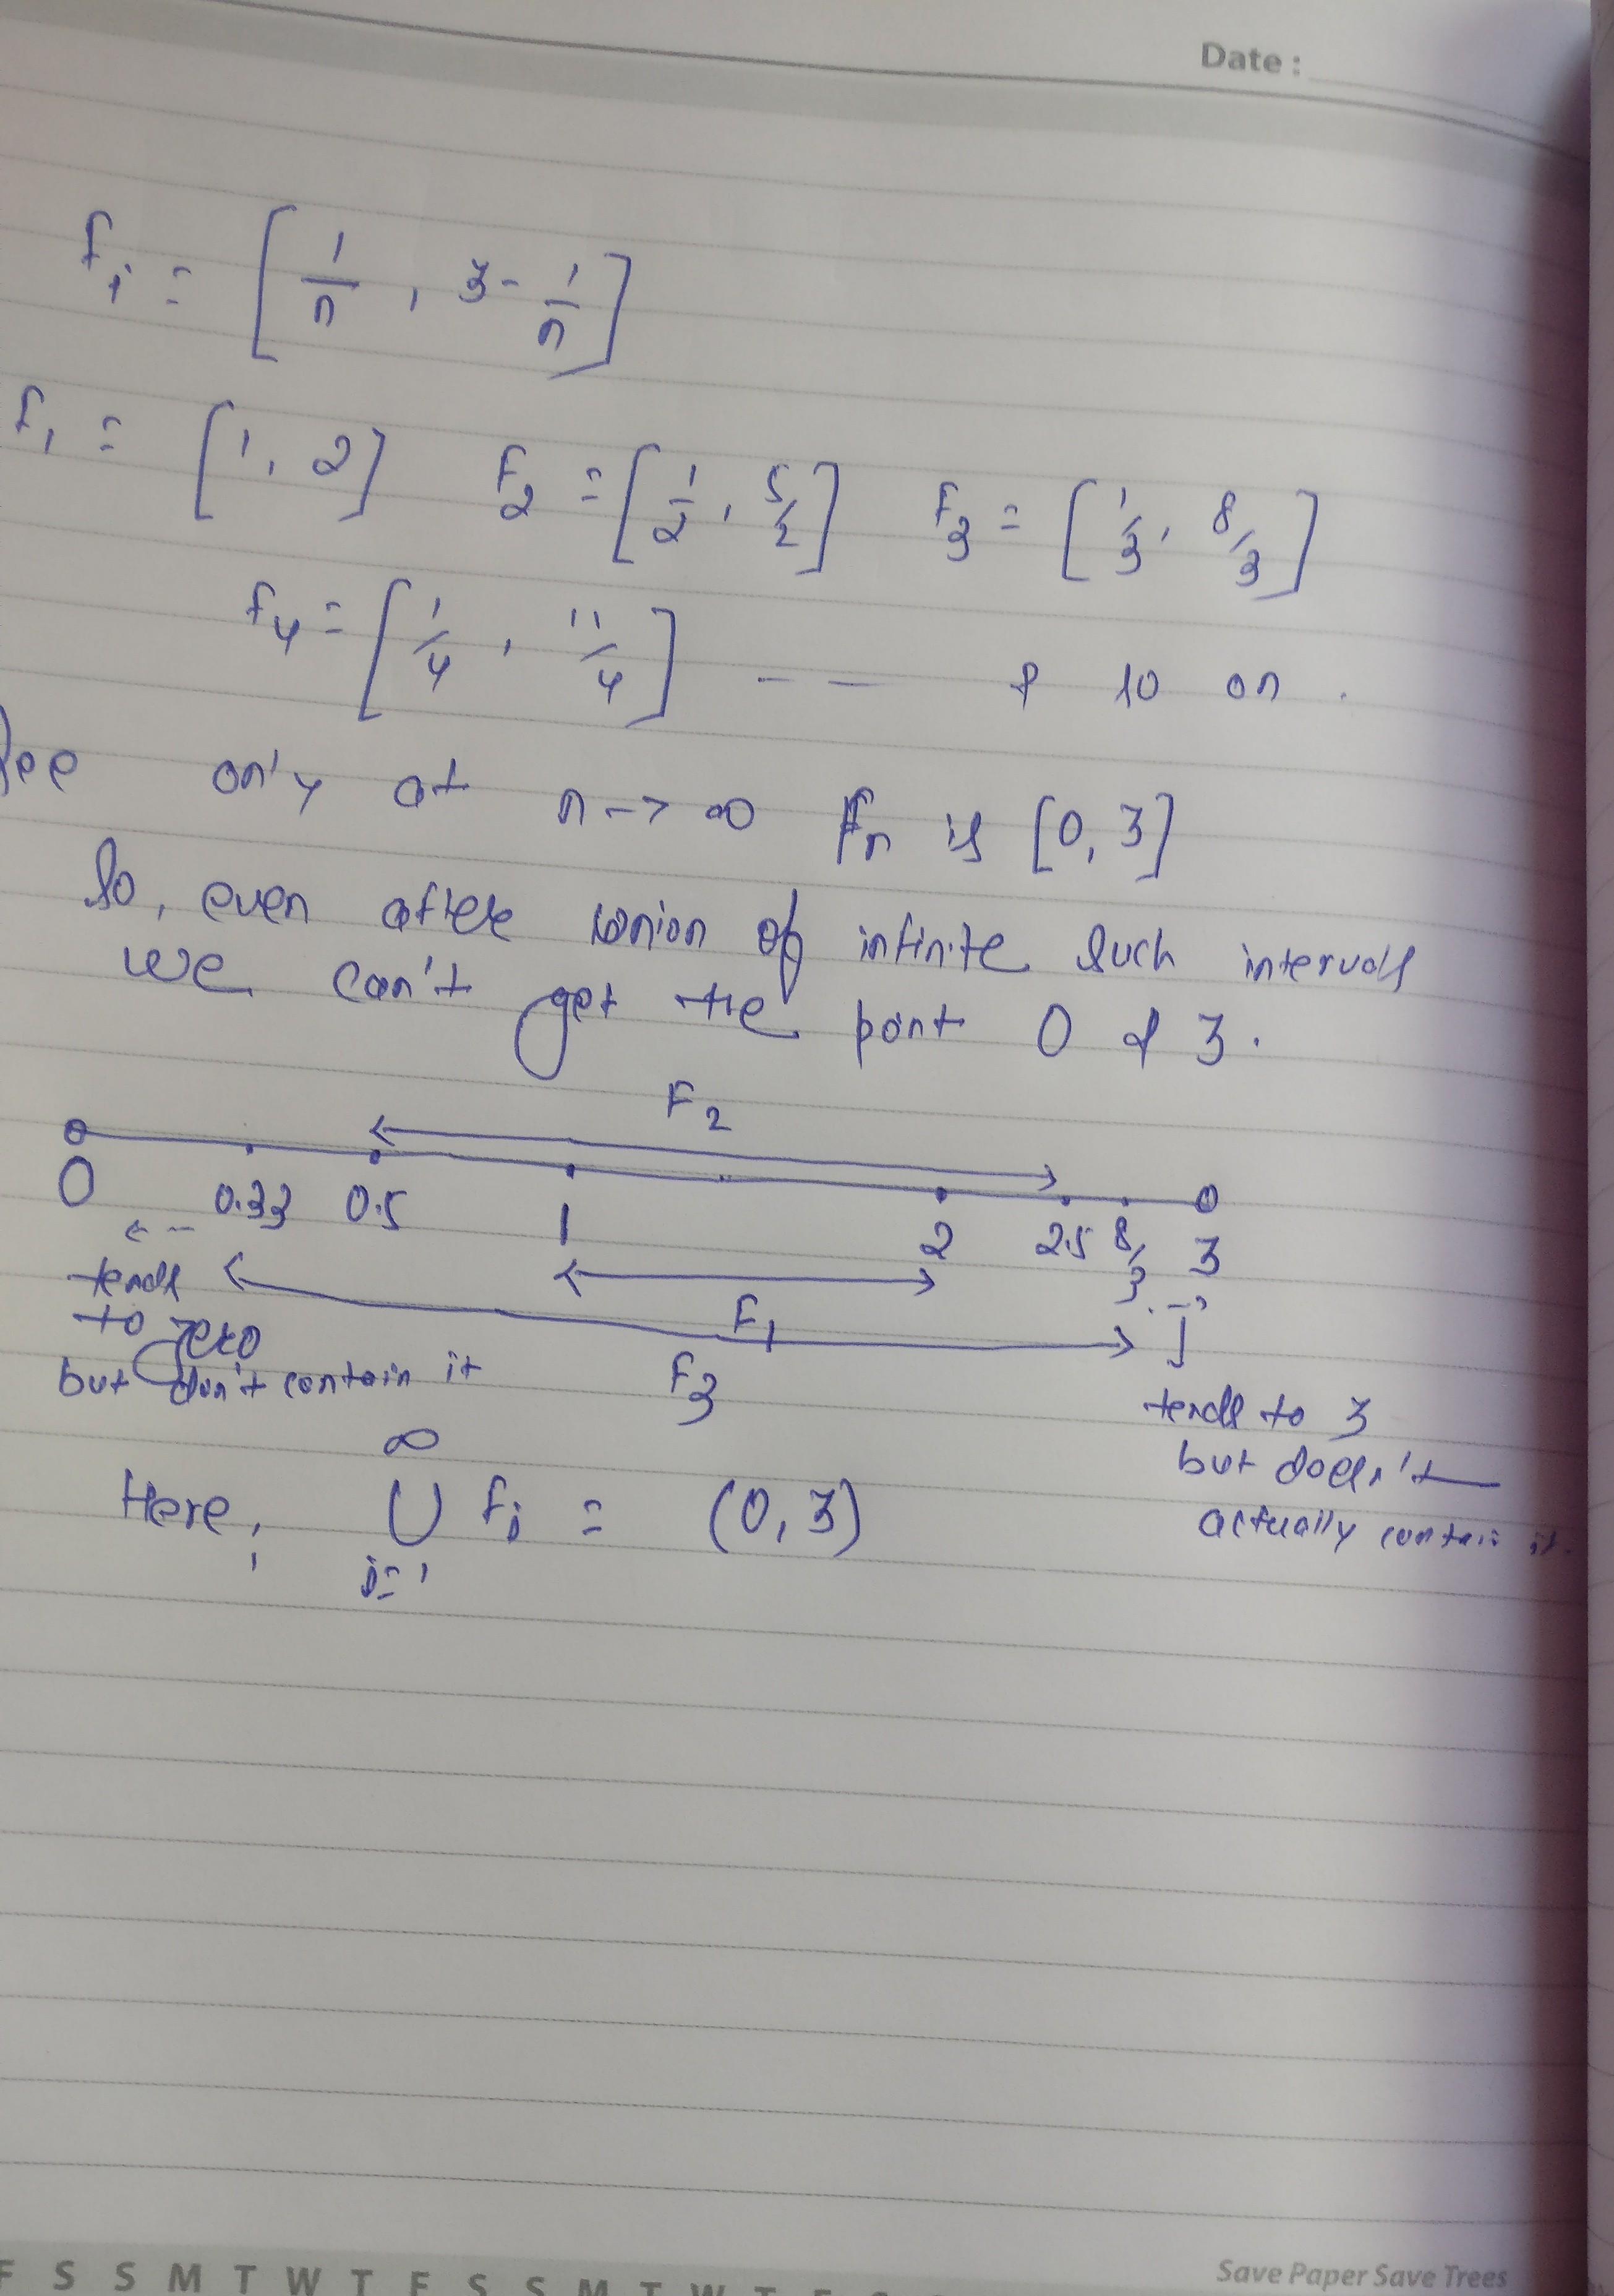 Date :
f_i = [1/n, 3 - 1/n]
f_1 = [1, 2] F_2 = [1/2, 5/2] F_3 = [1/3, 8/3]
f_4 = [1/4, 11/4] - - & so on .
See only at n -> ∞ F_n is [0, 3]
So, even after union of infinite such intervals
we can't get the point 0 & 3.
F_2
0 0.33 0.5 1 2 2.5 8/3 3
tends
to zero
but don't contain it
F_1
F_3
tends to 3
but doesn't
actually contain it.
Here, ∞ ∪ i=1 f_i = (0, 3)
F S S M T W T F S S M T W T F
Save Paper Save Trees